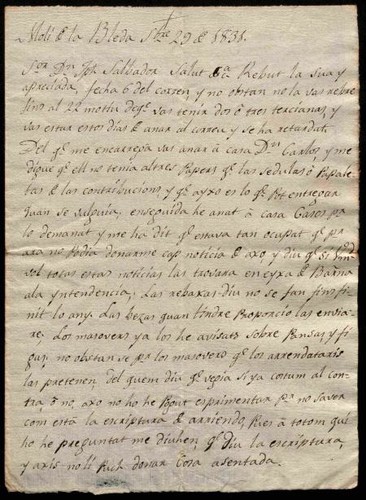 Molí de la Bleda Sbre 29 de 1831.
Sor Dn Jph Salvador Salut &a Rebut la sua y
apreciada, fecha 6 del corren, y no obtan no la vas rebre
fins al 22 motiu de qe vas tenir dos o tres tercianas, y
vas estar estos dias de anar al correu y se ha retardat.
Del qe me encarrega vas anar á casa Dn Carlos, y me
digue qe ell no tenia altres Papers qe las sedulas ó Papale-
tas de las contribucions y qe axo es lo qe Pot entregar
quan se vulguia, enseguida he anat á Casa Gasos pa
lo demanat y me ha dit qe estava tan ocupat qe pa
ara no Podia donarme cap noticia de axo, y diu qe si
vol totas estas noticias las trovara en
ala yntendencia; Las rebaxas diu no se fan fins fi-
nit lo any. Las bezas quan tindre Proporcio las envia-
re. Dos masovers ya los he avisats sobre Pansas, y fi-
gas; no obstan se pa los masovers qe los arrendataris
las pretenen del quem diu qe vegia si ya costum al con-
tra o no, axo no ho he Pogut esprimentar pa no saver
com está la escriptura de arriendo, Pues á totom qui
ho he preguntat me diuhen qe diu la escriptura,
y axis no li Puch donar Cosa asentada.